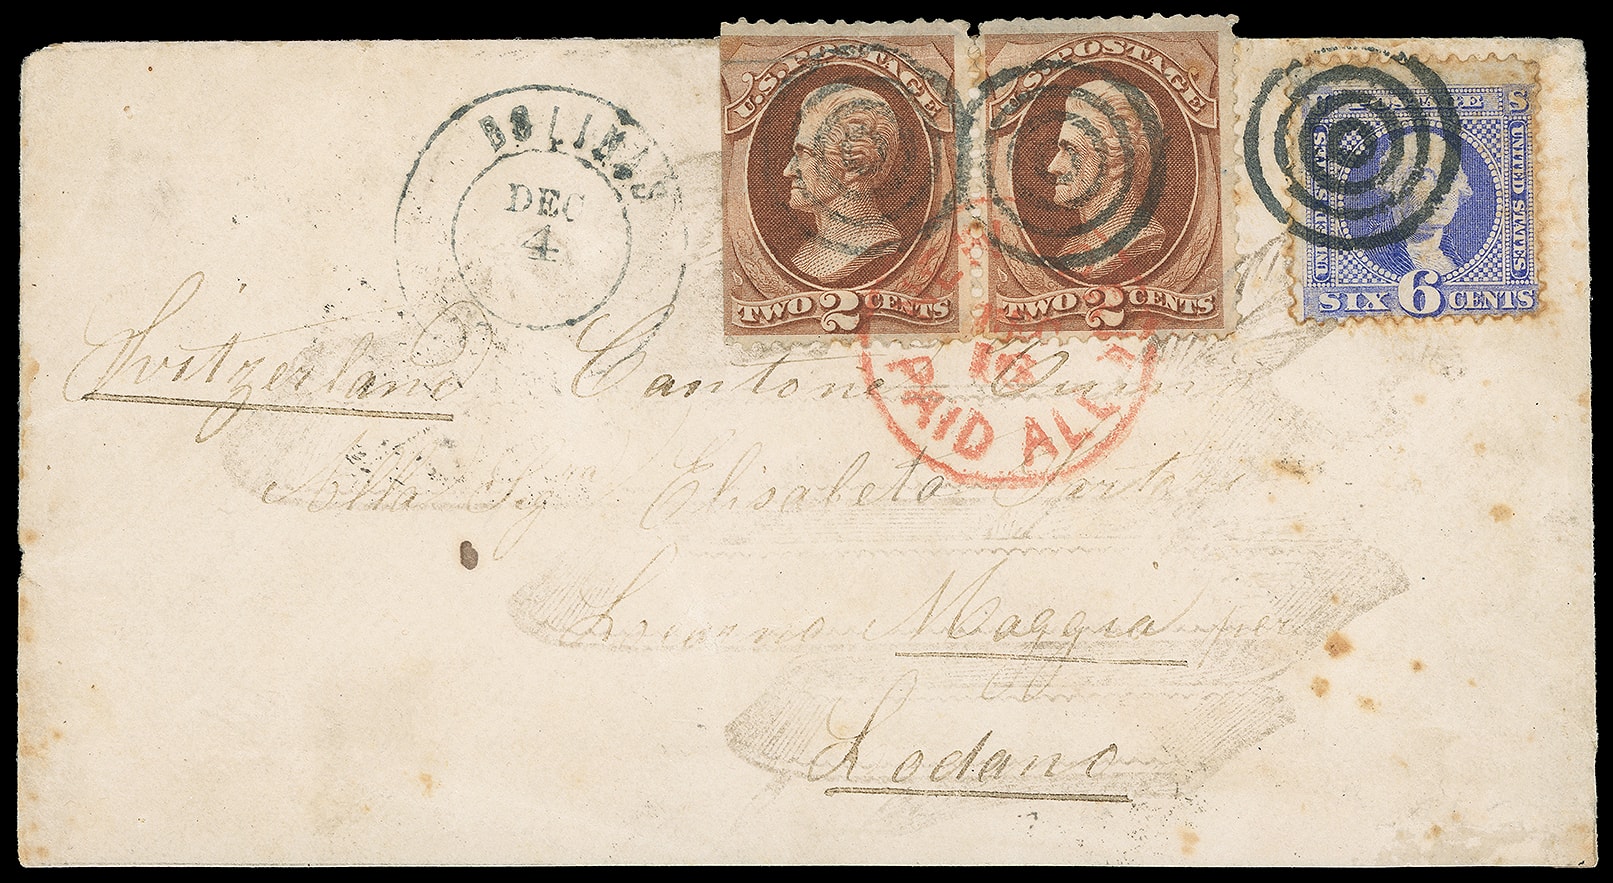 BOLINAS
DEC
4
U.S. POSTAGE
TWO 2 CENTS
U.S. POSTAGE
TWO 2 CENTS
POSTAGE
UNITED STATES
UNITED STATES
SIX 6 CENTS
PAID ALL
Switzerland Cantone
Alla Sig Elisabeta
Locarno Maggia per
Lodano